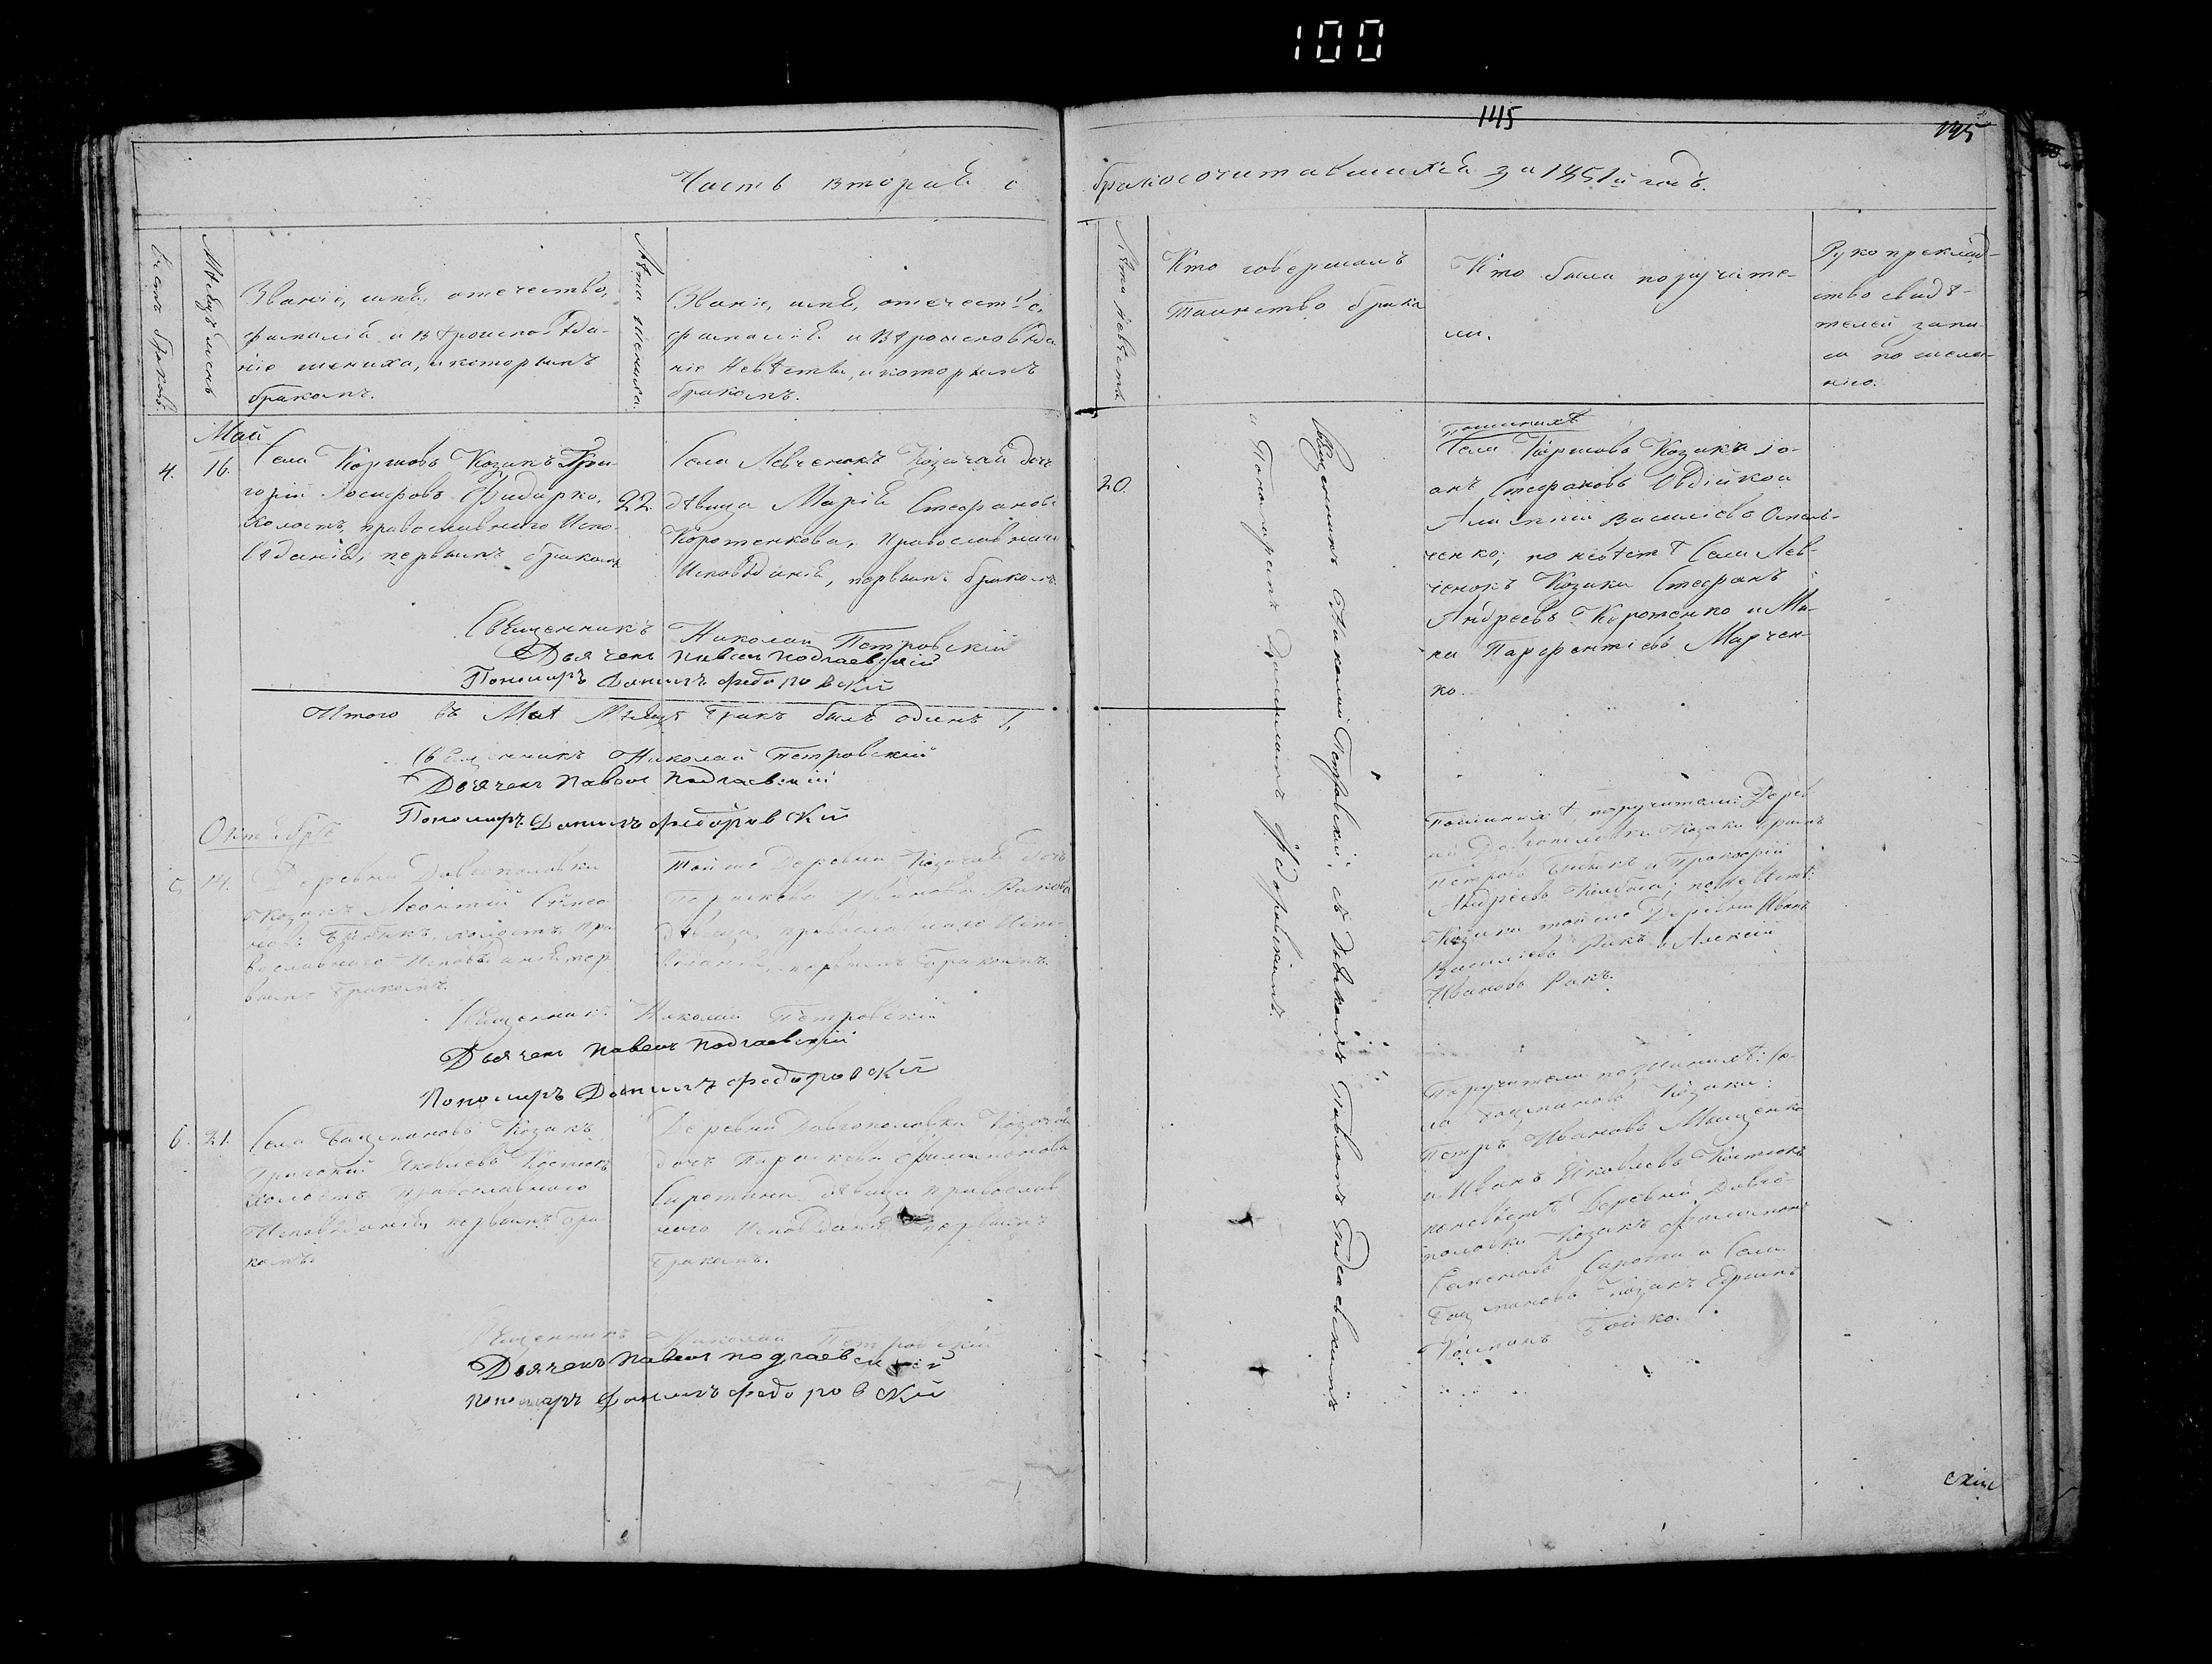 100
145
145
Часть вторая о
бракосочитавшихся за 1851й годъ.
Счетъ браковъ.
Мѣсяцъ и день
Званіе, имя, отечество,
фамилія и вѣроисповѣда-
ніе жениха, и которымъ
бракомъ.
Лѣта жениха.
Званіе, имя, отечество,
фамилія и вѣроисповѣда
ніе Невѣсты, и которымъ
бракомъ.
Лѣта невѣсты
Кто совершалъ
Таинство брака
Кто были поручите-
ли.
Рукоприклад-
ство свидѣ-
телей запи-
си по жела-
нію.
Май
4.
16.
Села Коршовъ Козакъ Гри-
горій Іосифовъ Фидирко,
холостъ, православнаго Испо-
вѣданія, первымъ бракомъ
22.
Села Левченокъ Козачая дочь
дѣвица Марія Стефанова
Коротенкова, Православнаго
Исповѣданія, первымъ бракомъ
20.
Священникъ Николай Петровскій, съ Дьякомъ Павломъ Подгаевскимъ
и Пономаремъ Даниломъ Федоровскимъ.
По женихѣ
Села Коршовъ Козаки Іо-
анъ Стефановъ Овдійко и
Василіевъ
ченко; по невѣстѣ Села Лев-
ченокъ Козаки Стефанъ
Андреевъ Коротенко и Ма-
Парфентіевъ Марчен-
ко.
Священникъ Николай Петровскій
Дьячекъ Павелъ Подгаевскій
Пономарь Данилъ Федоровскій
Итого въ Маѣ Мѣсяцѣ бракъ былъ одинъ 1,
Священникъ Николай Петровскій
Дьячекъ Павелъ Подгаевскій
Пономарь Данилъ Федоровскій
Октябрь
5.
14.
Деревни Довгополовки
Козакъ Леонтій Симео
новъ Бибикъ, холостъ, пра
вославнаго Исповѣданія, пер
вымъ бракомъ.
Той же Деревни Козачая дочь
Параскева Иванова Ракова
дѣвица, православнаго Испо
вѣданія, первымъ бракомъ.
По женихѣ, поручители: Дерев
ни Довгополовки Козаки
Петровъ Бибикъ и Прокофій
Андреевъ по невѣстѣ:
Козаки той же Деревни Иванъ
Василіевъ Ракъ и Алексій
Ивановъ Ракъ.
Священникъ Николай Петровскій
Дьячекъ Павелъ Подгаевскій
Пономарь Данилъ Федоровскій
6.
21.
Села Бацмановъ Козакъ
Григорій Яковлевъ Костюкъ
холостъ Православнаго
Исповѣданія, первымъ бра-
комъ.
Деревни Довгополовки Козачая
дочь Параскева Филимонова
Сиротина дѣвица православ
наго Исповѣданія первымъ
бракомъ.
Поручители по женихѣ: Се-
ла Бацмановъ Козаки:
Петръ Ивановъ Мищенко
и Иванъ Яковлевъ Костюкъ
по невѣстѣ Деревни Довго-
половки Козакъ Филимонъ
Сирота и Села
Бацмановъ Козакъ Ефимъ
Бойко.
Священникъ Николай Петровскій
Дьячекъ Павелъ Подгаевскій
Пономарь Данилъ Федоровскій